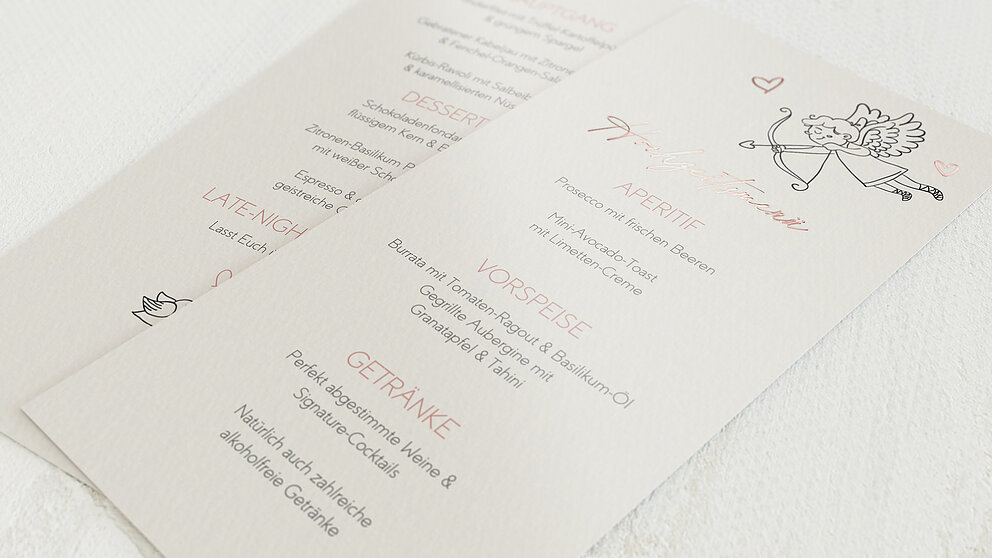 Hochzeitsmenü
APERITIF
Prosecco mit frischen Beeren
Mini-Avocado-Toast
mit Limetten-Creme
VORSPEISE
Burrata mit Tomaten-Ragout & Basilikum-Öl
Gegrillte Aubergine mit
Granatapfel & Tahini
GETRÄNKE
Perfekt abgestimmte Weine &
Signature-Cocktails
Natürlich auch zahlreiche
alkoholfreie Getränke
mit Trüffel-Kartoffelp
& grünem Spargel
Gebratener Kabeljau mit Zitrone
& Fenchel-Orangen-Sal
Kürbis-Ravioli mit Salbeib
& karamellisierten Nüs
DESSERT
Schokoladenfondan
flüssigem Kern & E
Zitronen-Basilikum P
mit weißer Scho
Espresso &
geistreiche
LATE-NIGH
Lasst Euch